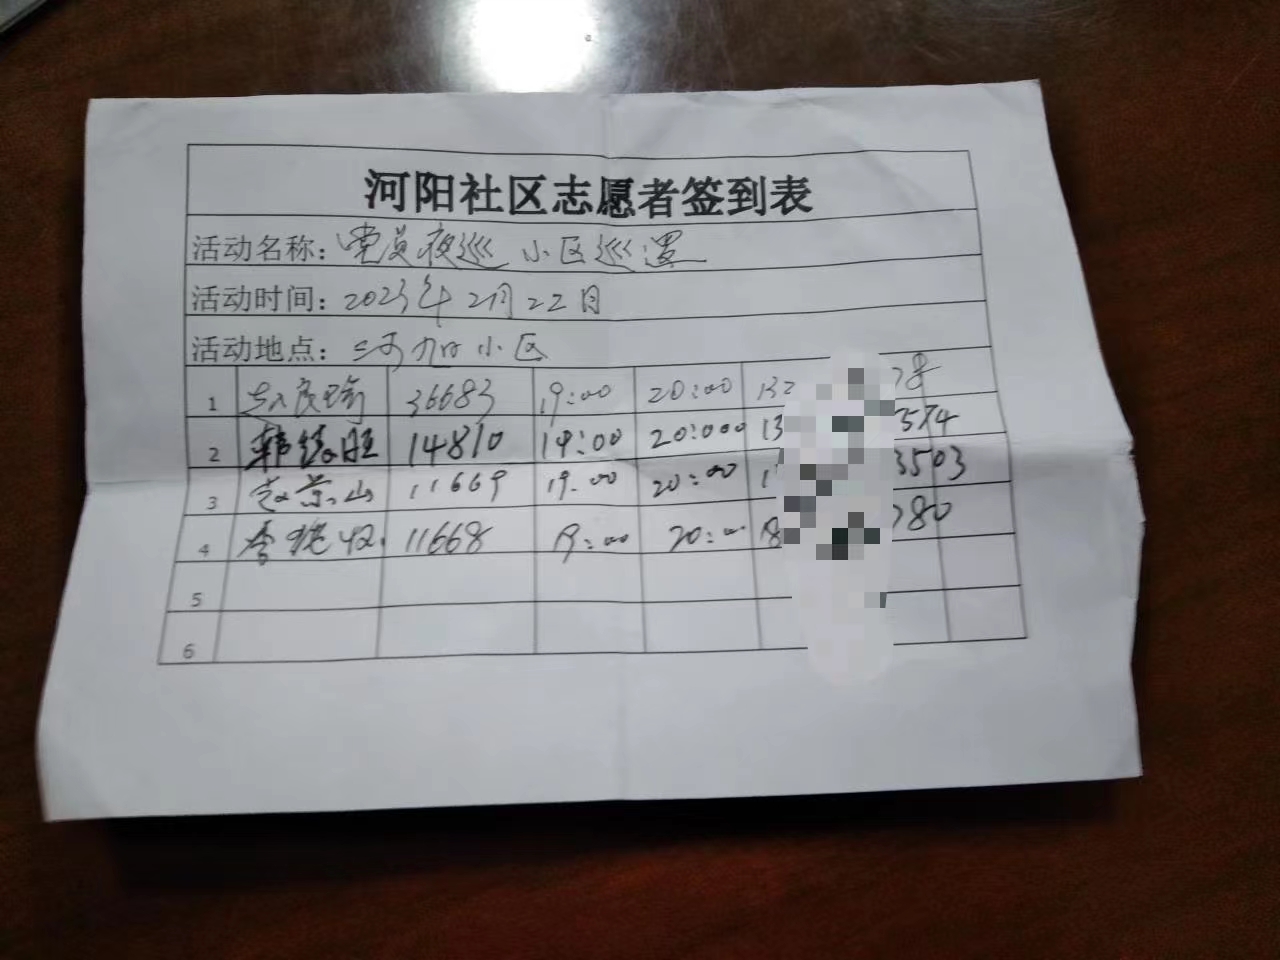 河阳社区志愿者签到表
活动名称：党员夜巡 小区巡逻
活动时间：2023年2月22日
活动地点：河阳小区
1 36683 19:00 20:00 132 78
2 韩 旺 14810 19:00 20:000 13 574
3 赵景山 11669 19:00 20:00 1 3503
4 李 11668 19:00 20:00 18 780
5
6